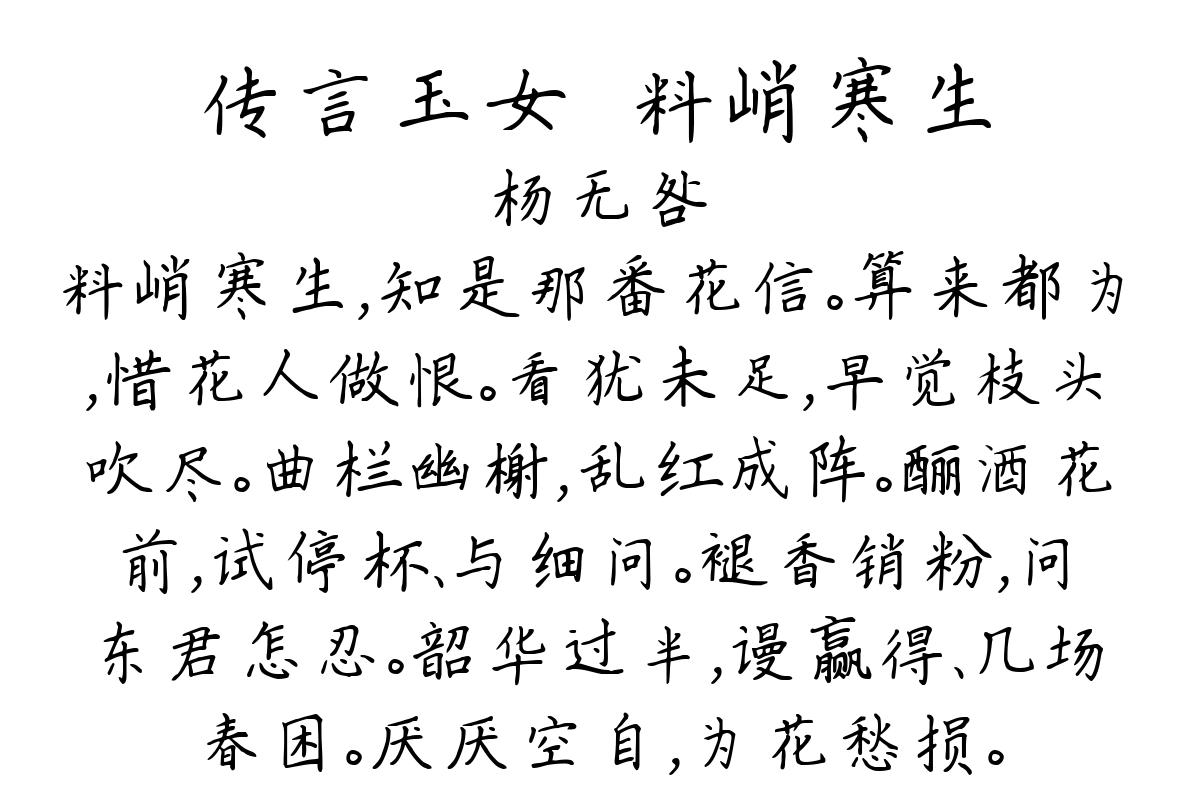 传言玉女 料峭寒生
杨无咎
料峭寒生,知是那番花信。算来都为
,惜花人做恨。看犹未足,早觉枝头
吹尽。曲栏幽榭,乱红成阵。酾酒花
前,试停杯、与细问。褪香销粉,问
东君怎忍。韶华过半,谩赢得、几场
春困。厌厌空自,为花愁损。